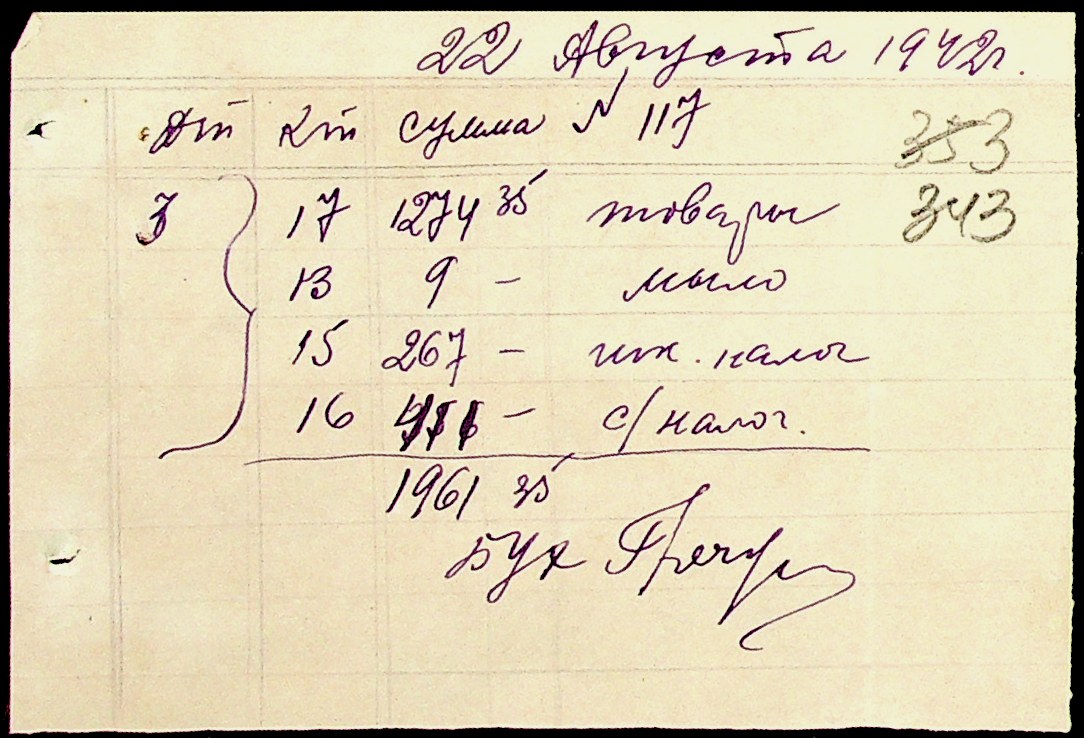 22 Августа 1942г.
Дт Кт сумма № 117 353
3 17 1274 35 товары 343
13 9 – мыло
15 267 – налог
16 411 – с/налог.
1961 35
Бух